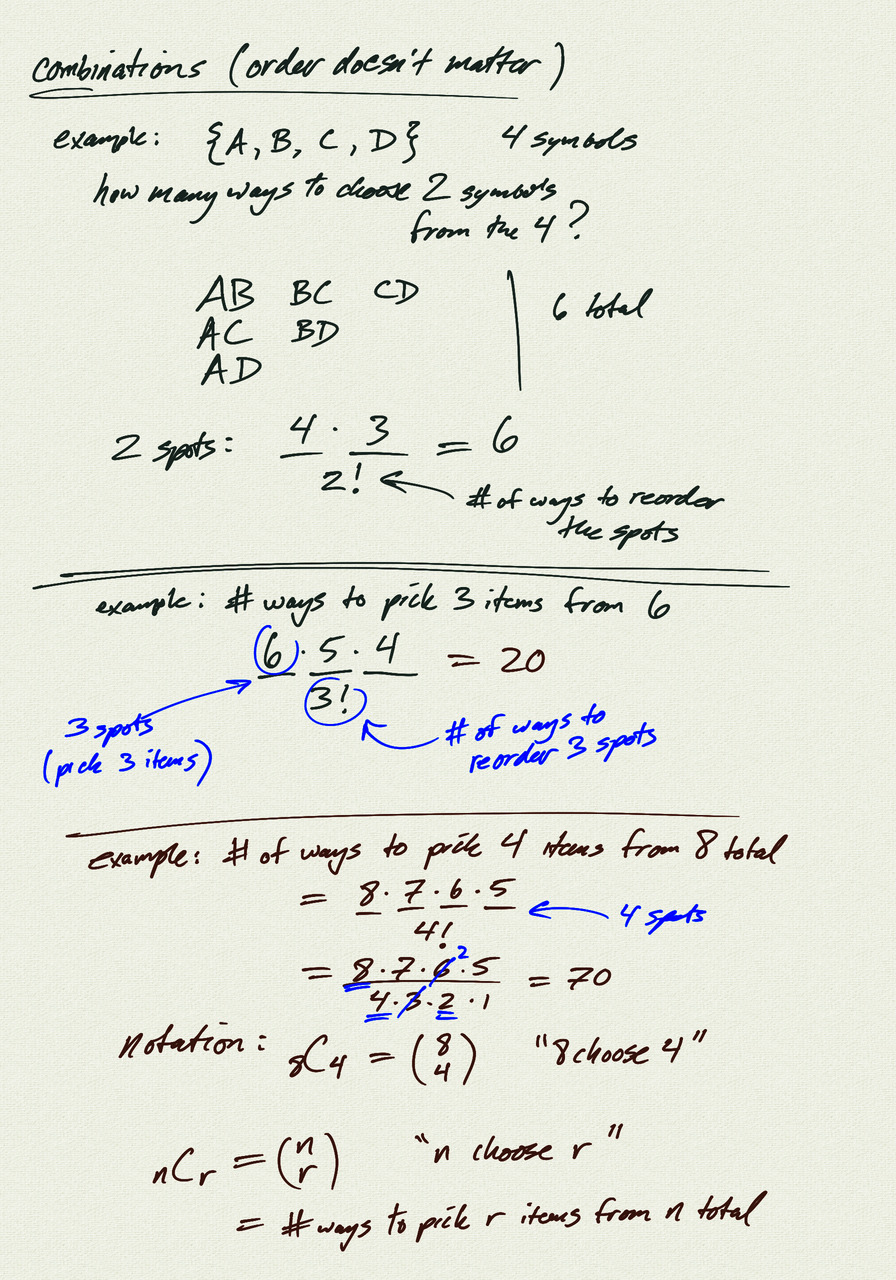 combinations (order doesn't matter)
example: {A, B, C, D} 4 symbols
how many ways to choose 2 symbols
from the 4?
AB BC CD
AC BD
AD
6 total
2 spots: 4 · 3 = 6
2!
# of ways to reorder
the spots
example: # ways to pick 3 items from 6
6 · 5 · 4 = 20
3!
3 spots
(pick 3 items)
# of ways to
reorder 3 spots
example: # of ways to pick 4 items from 8 total
= 8 · 7 · 6 · 5
4!
4 spots
= 8 · 7 · 6 2 · 5 = 70
4 · 3 · 2 · 1
notation: 8C4 = (8 4) "8 choose 4"
nCr = (n r) "n choose r"
= # ways to pick r items from n total